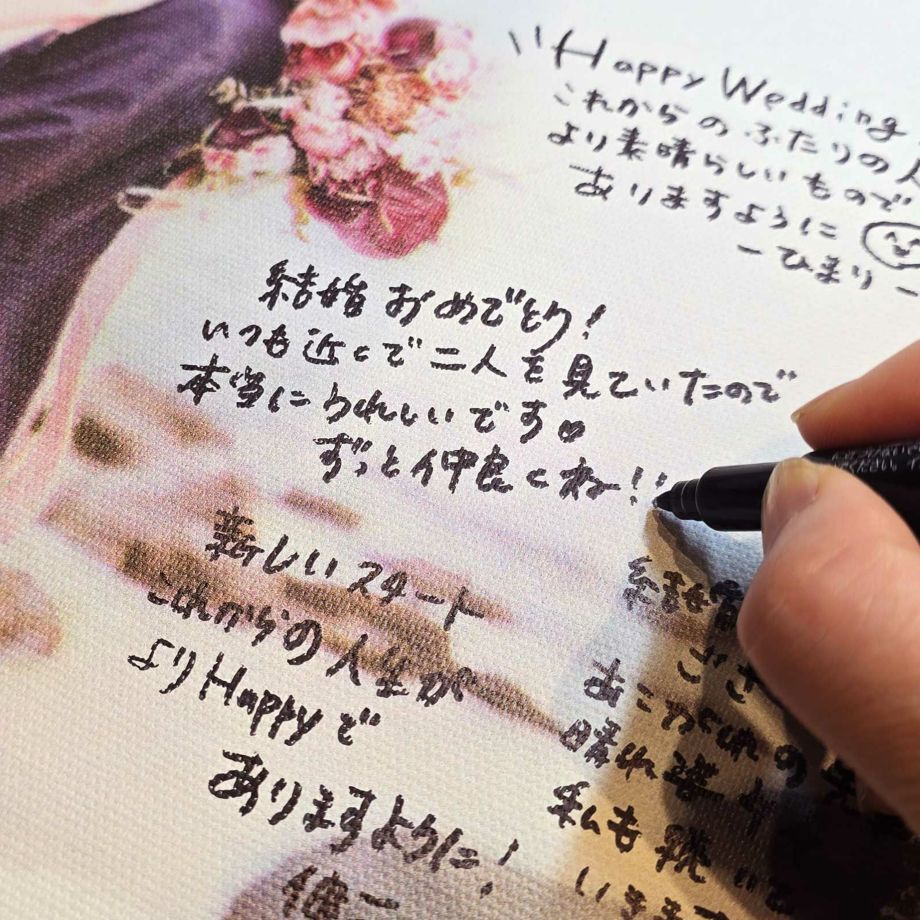 Happy Wedding
これからのふたりの人
より素晴らしいもので
ありますように
-ひまり-
結婚おめでとう!
いつも近くで二人を見ていたので
本当にうれしいです♡
ずっと仲良くね!!
新しいスタート
これからの人生が
よりHappyで
ありますように!
健一
結婚
ござ
あこがれの
晴れ姿
私も続いて
います